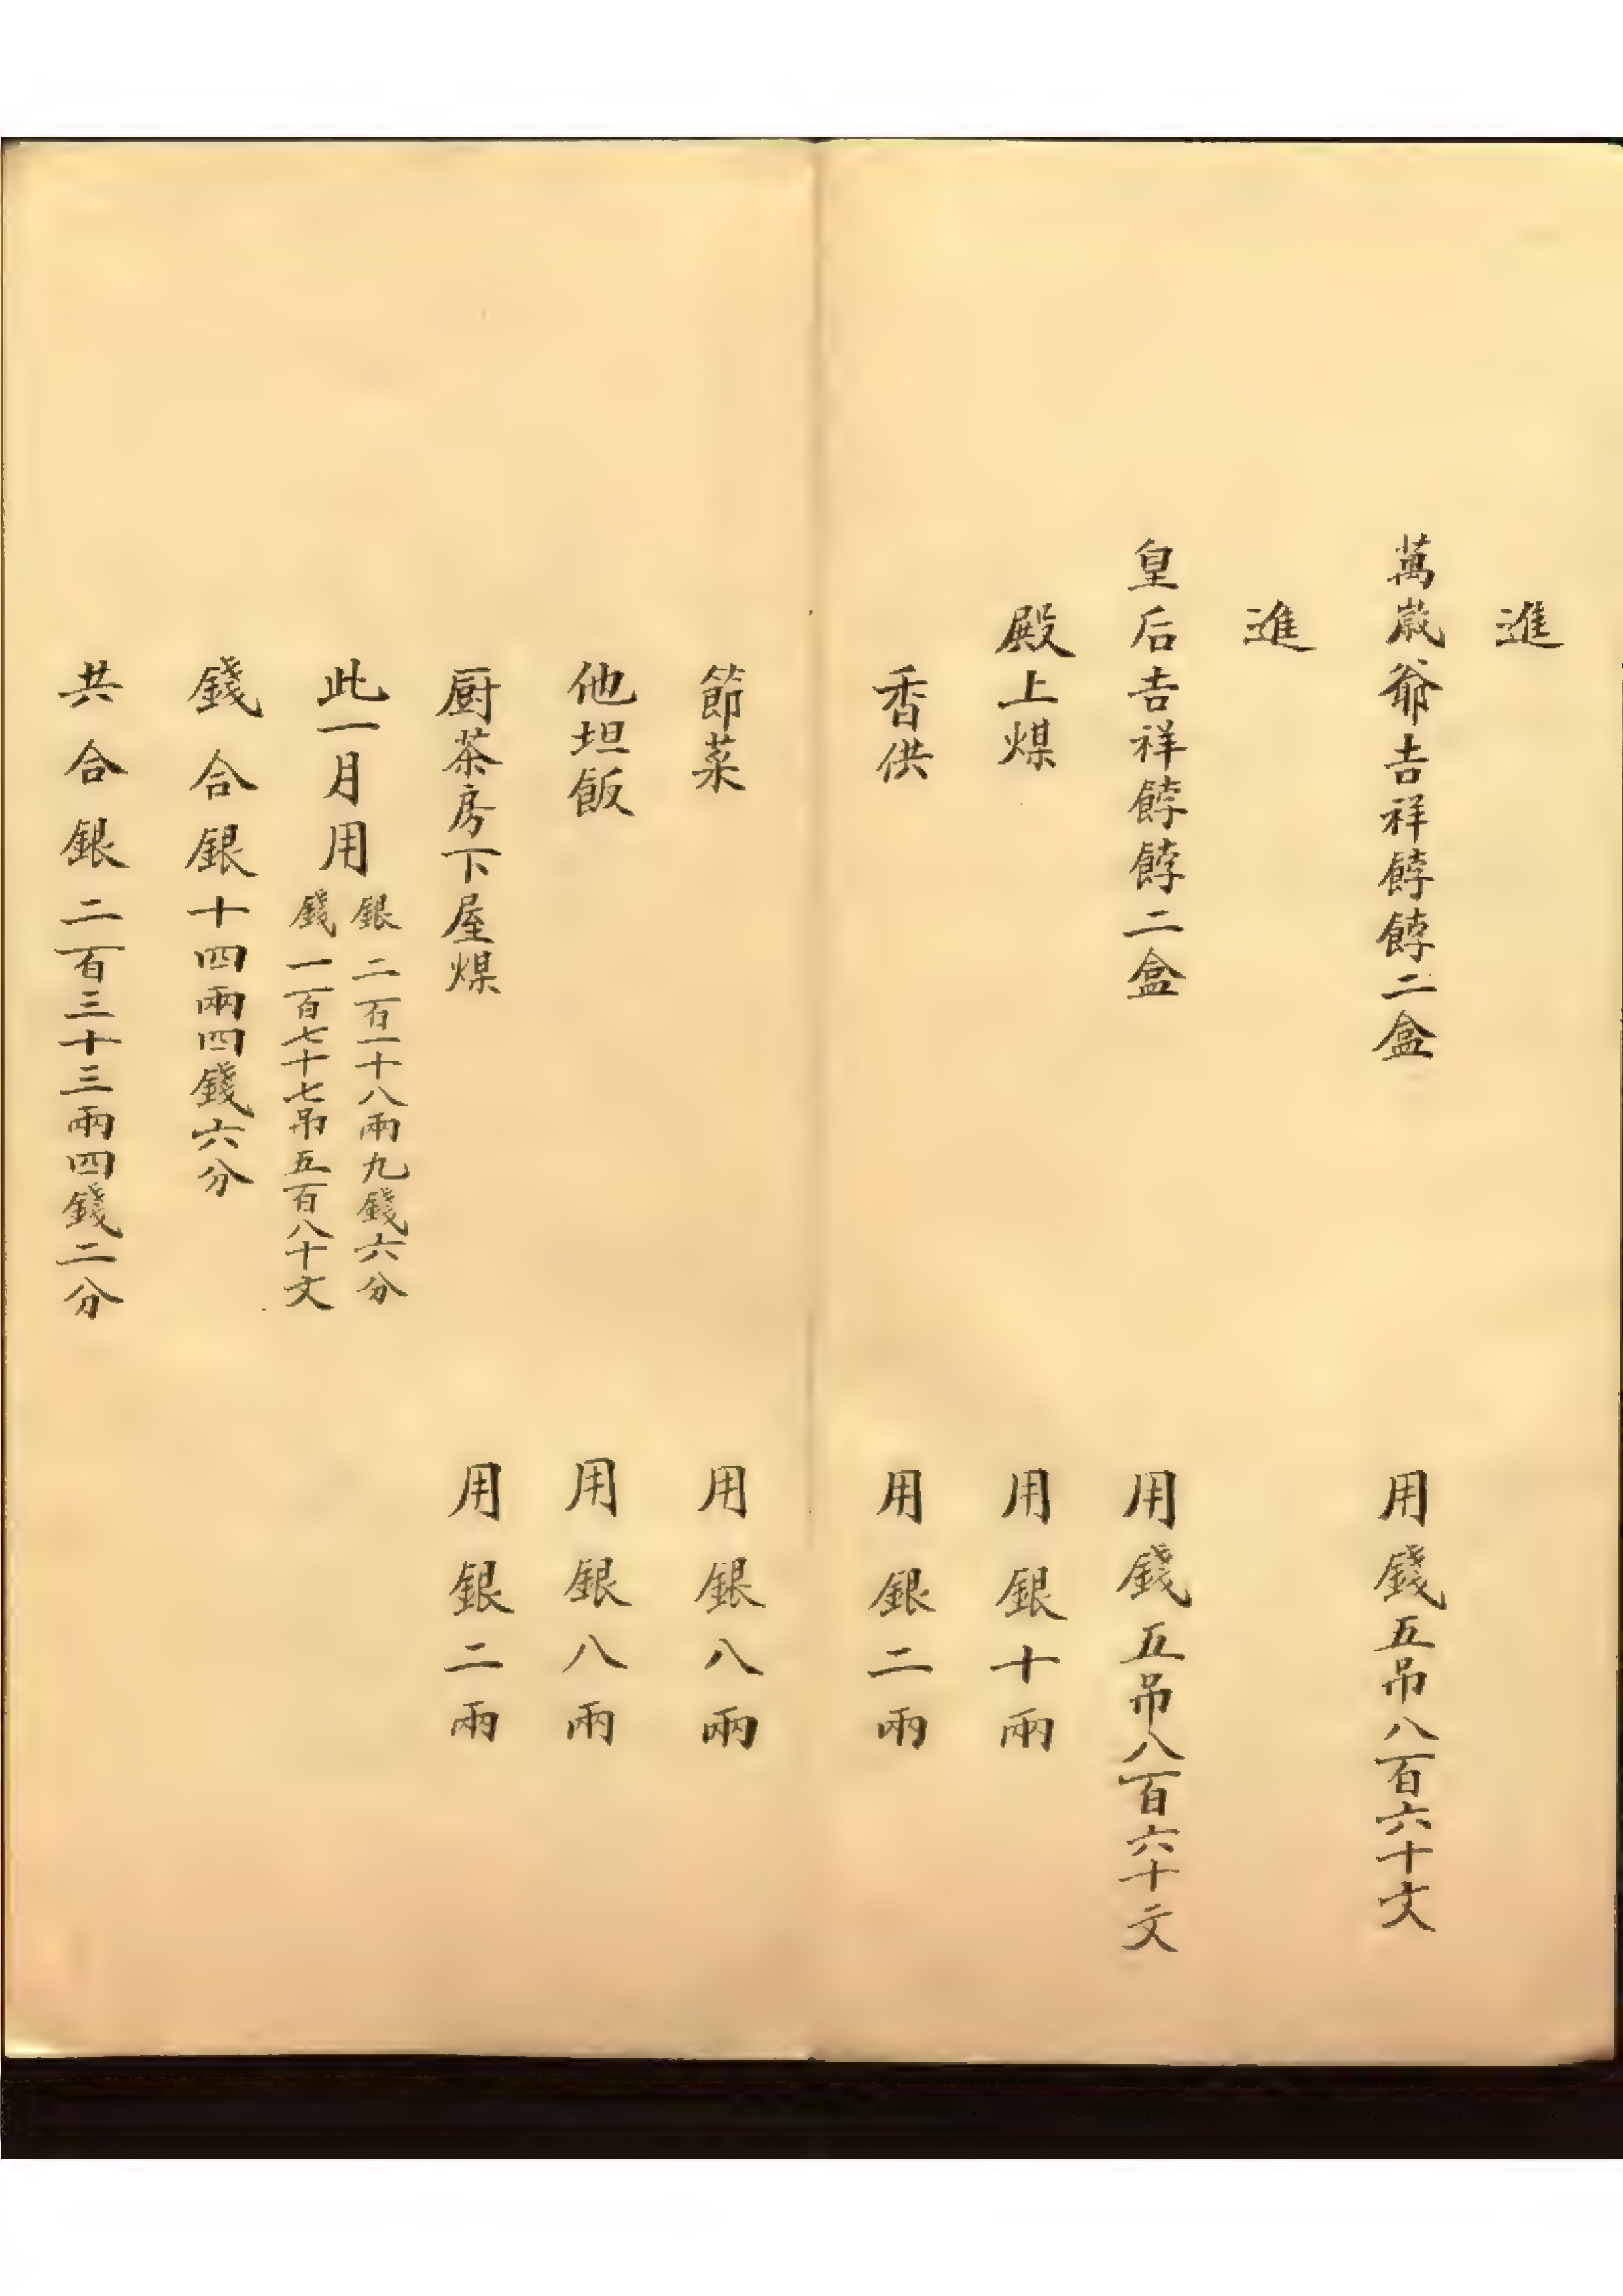 進
萬歲爺吉祥餑餑二盒 用錢五吊八百六十文
進
皇后吉祥餑餑二盒 用錢五吊八百六十文
殿上煤 用銀十兩
香供 用銀二兩
節菜 用銀八兩
他坦飯 用銀八兩
厨茶房下屋煤 用銀二兩
此一月用
銀二百一十八兩九錢六分
錢一百七十七吊五百八十文
錢合銀十四兩四錢六分
共合銀二百三十三兩四錢二分